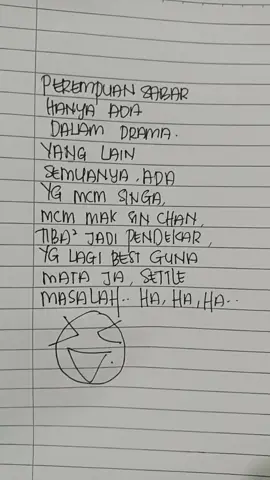 PEREMPUAN SABAR
HANYA ADA
DALAM DRAMA.
YANG LAIN
SEMUANYA, ADA
YG MCM SINGA,
MCM MAK SIN CHAN,
TIBA² JADI PENDEKAR,
YG LAGI BEST GUNA
MATA JA, SETTLE
MASALAH.. HA, HA, HA..